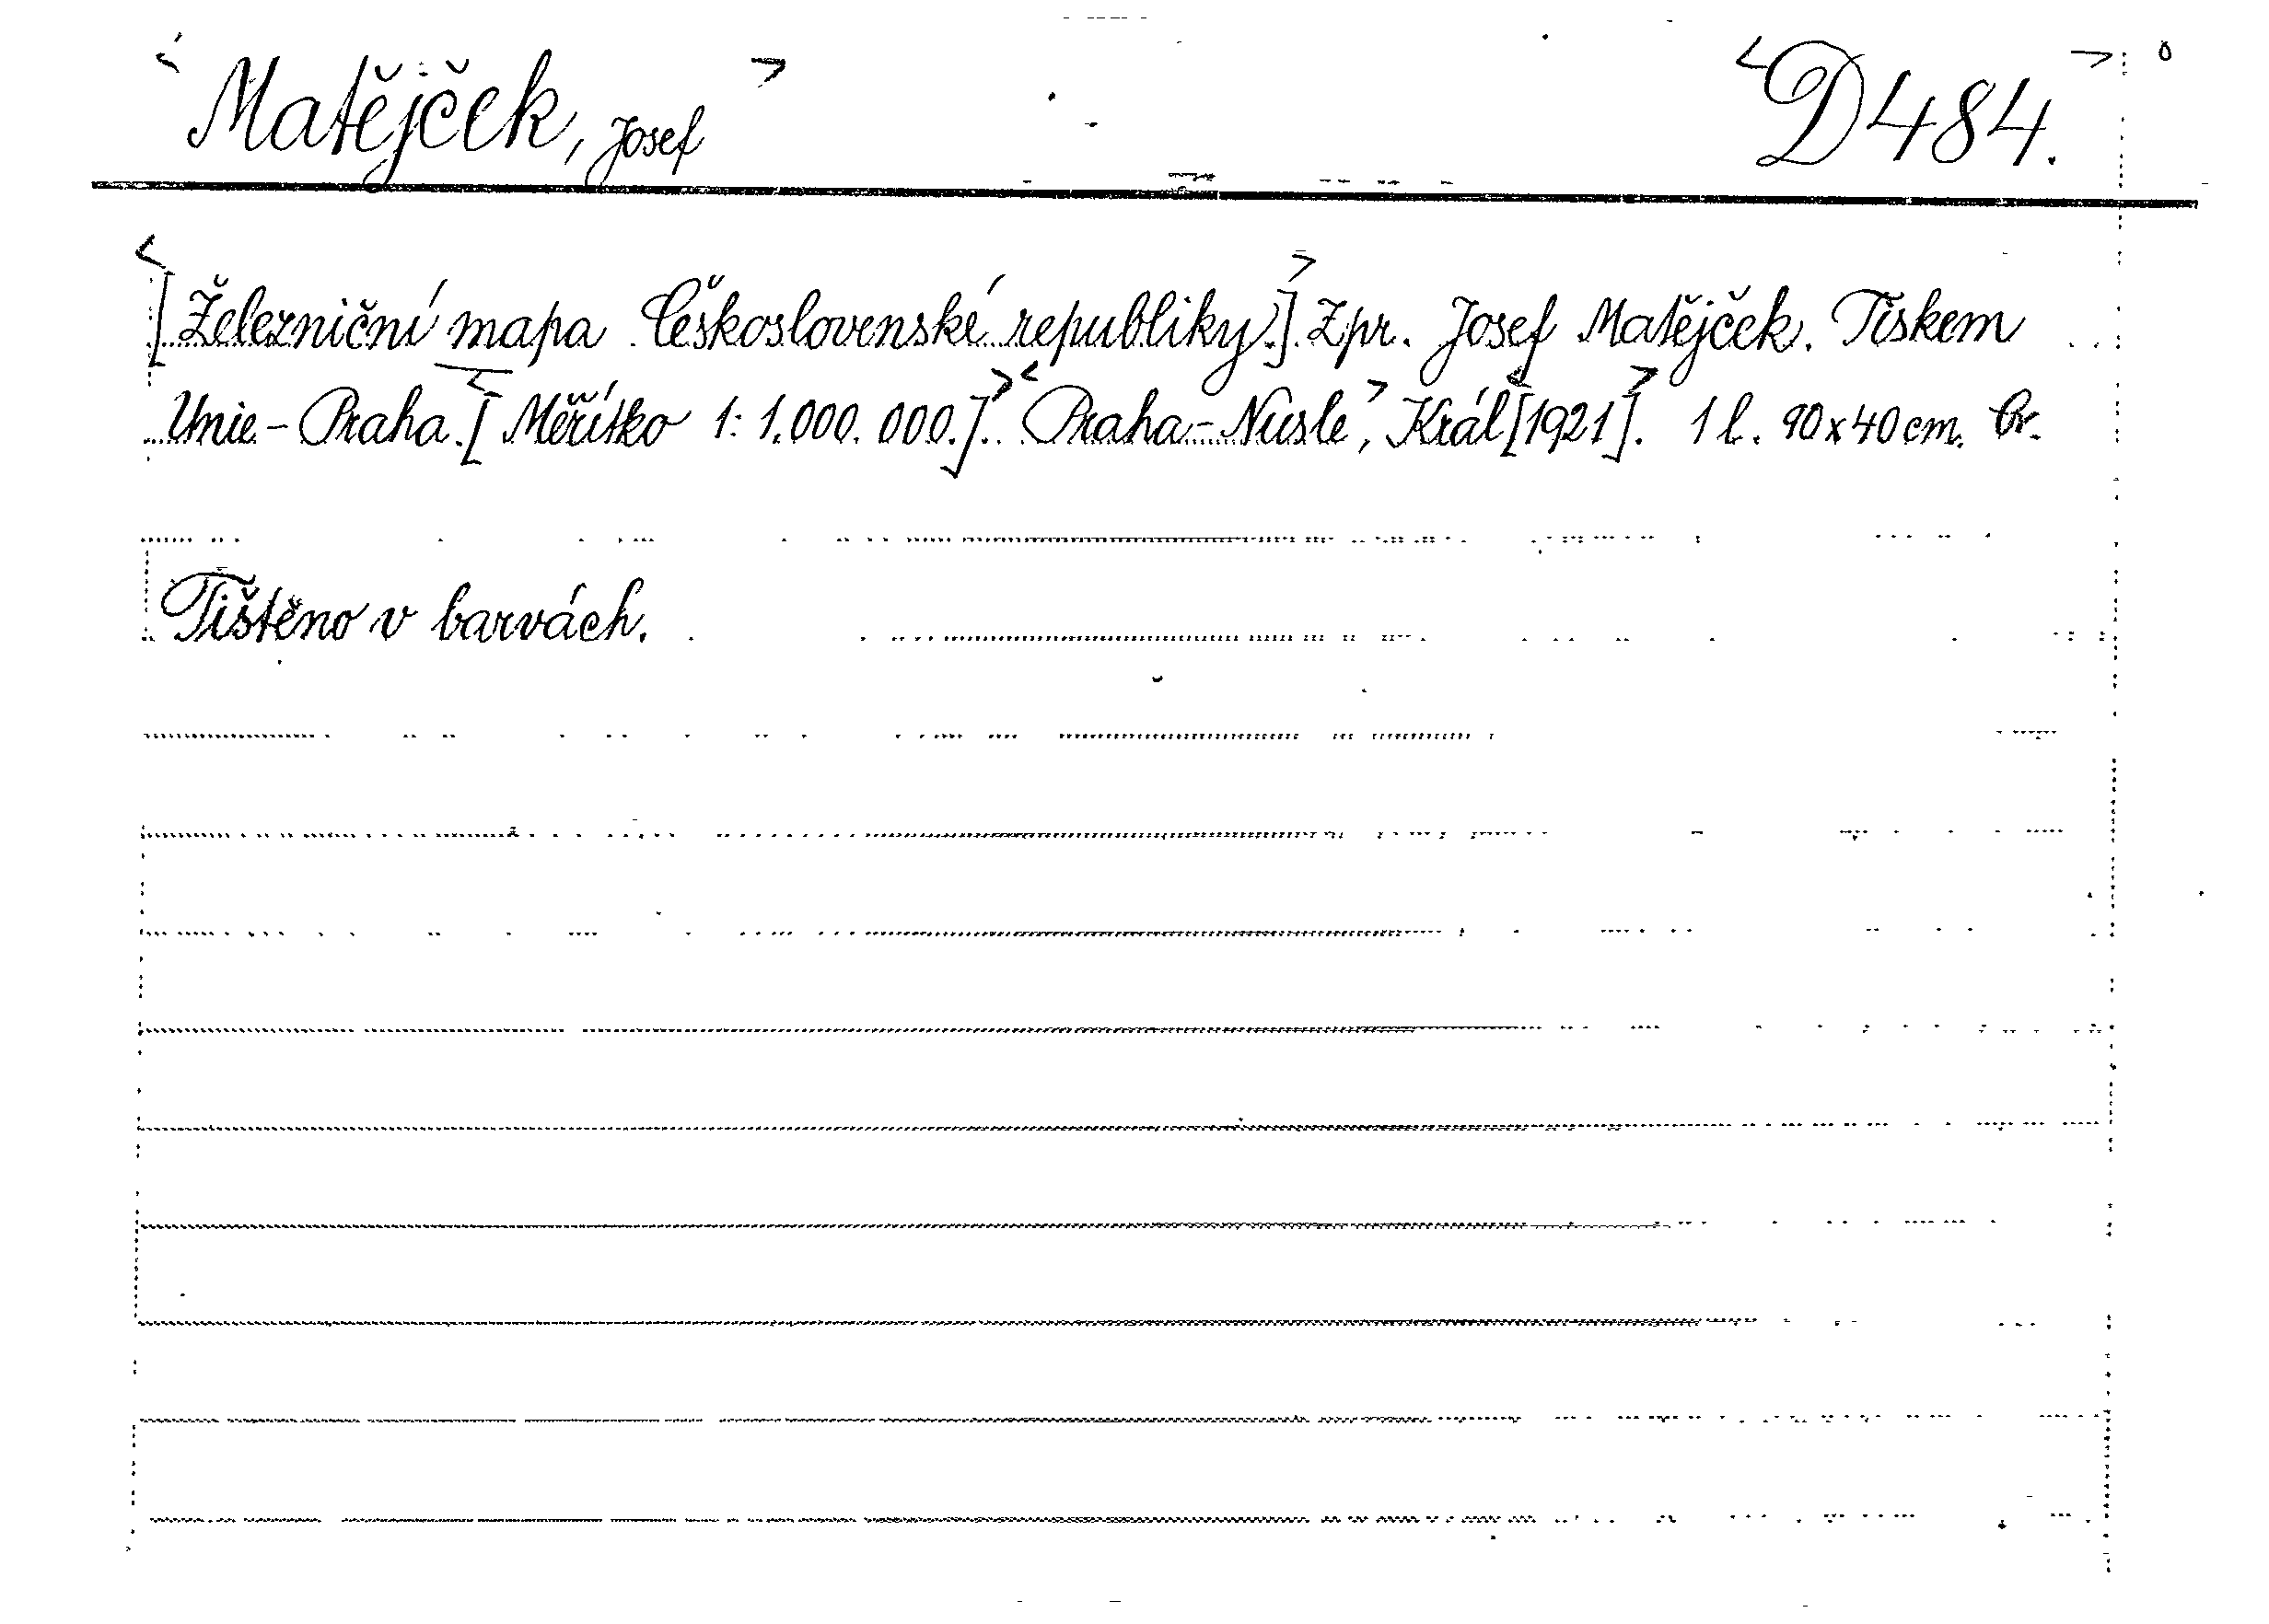 <Matějček, Josef> <D 484.>
<[Železniční mapa Československé republiky.]> Zpr. Josef Matějček. Tiskem
Unie-Praha. <[Měřítko 1:1,000.000.]> <Praha-Nusle>, Král <[1921]>. 1 l. 90x40 cm. Br.
Tištěno v barvách.